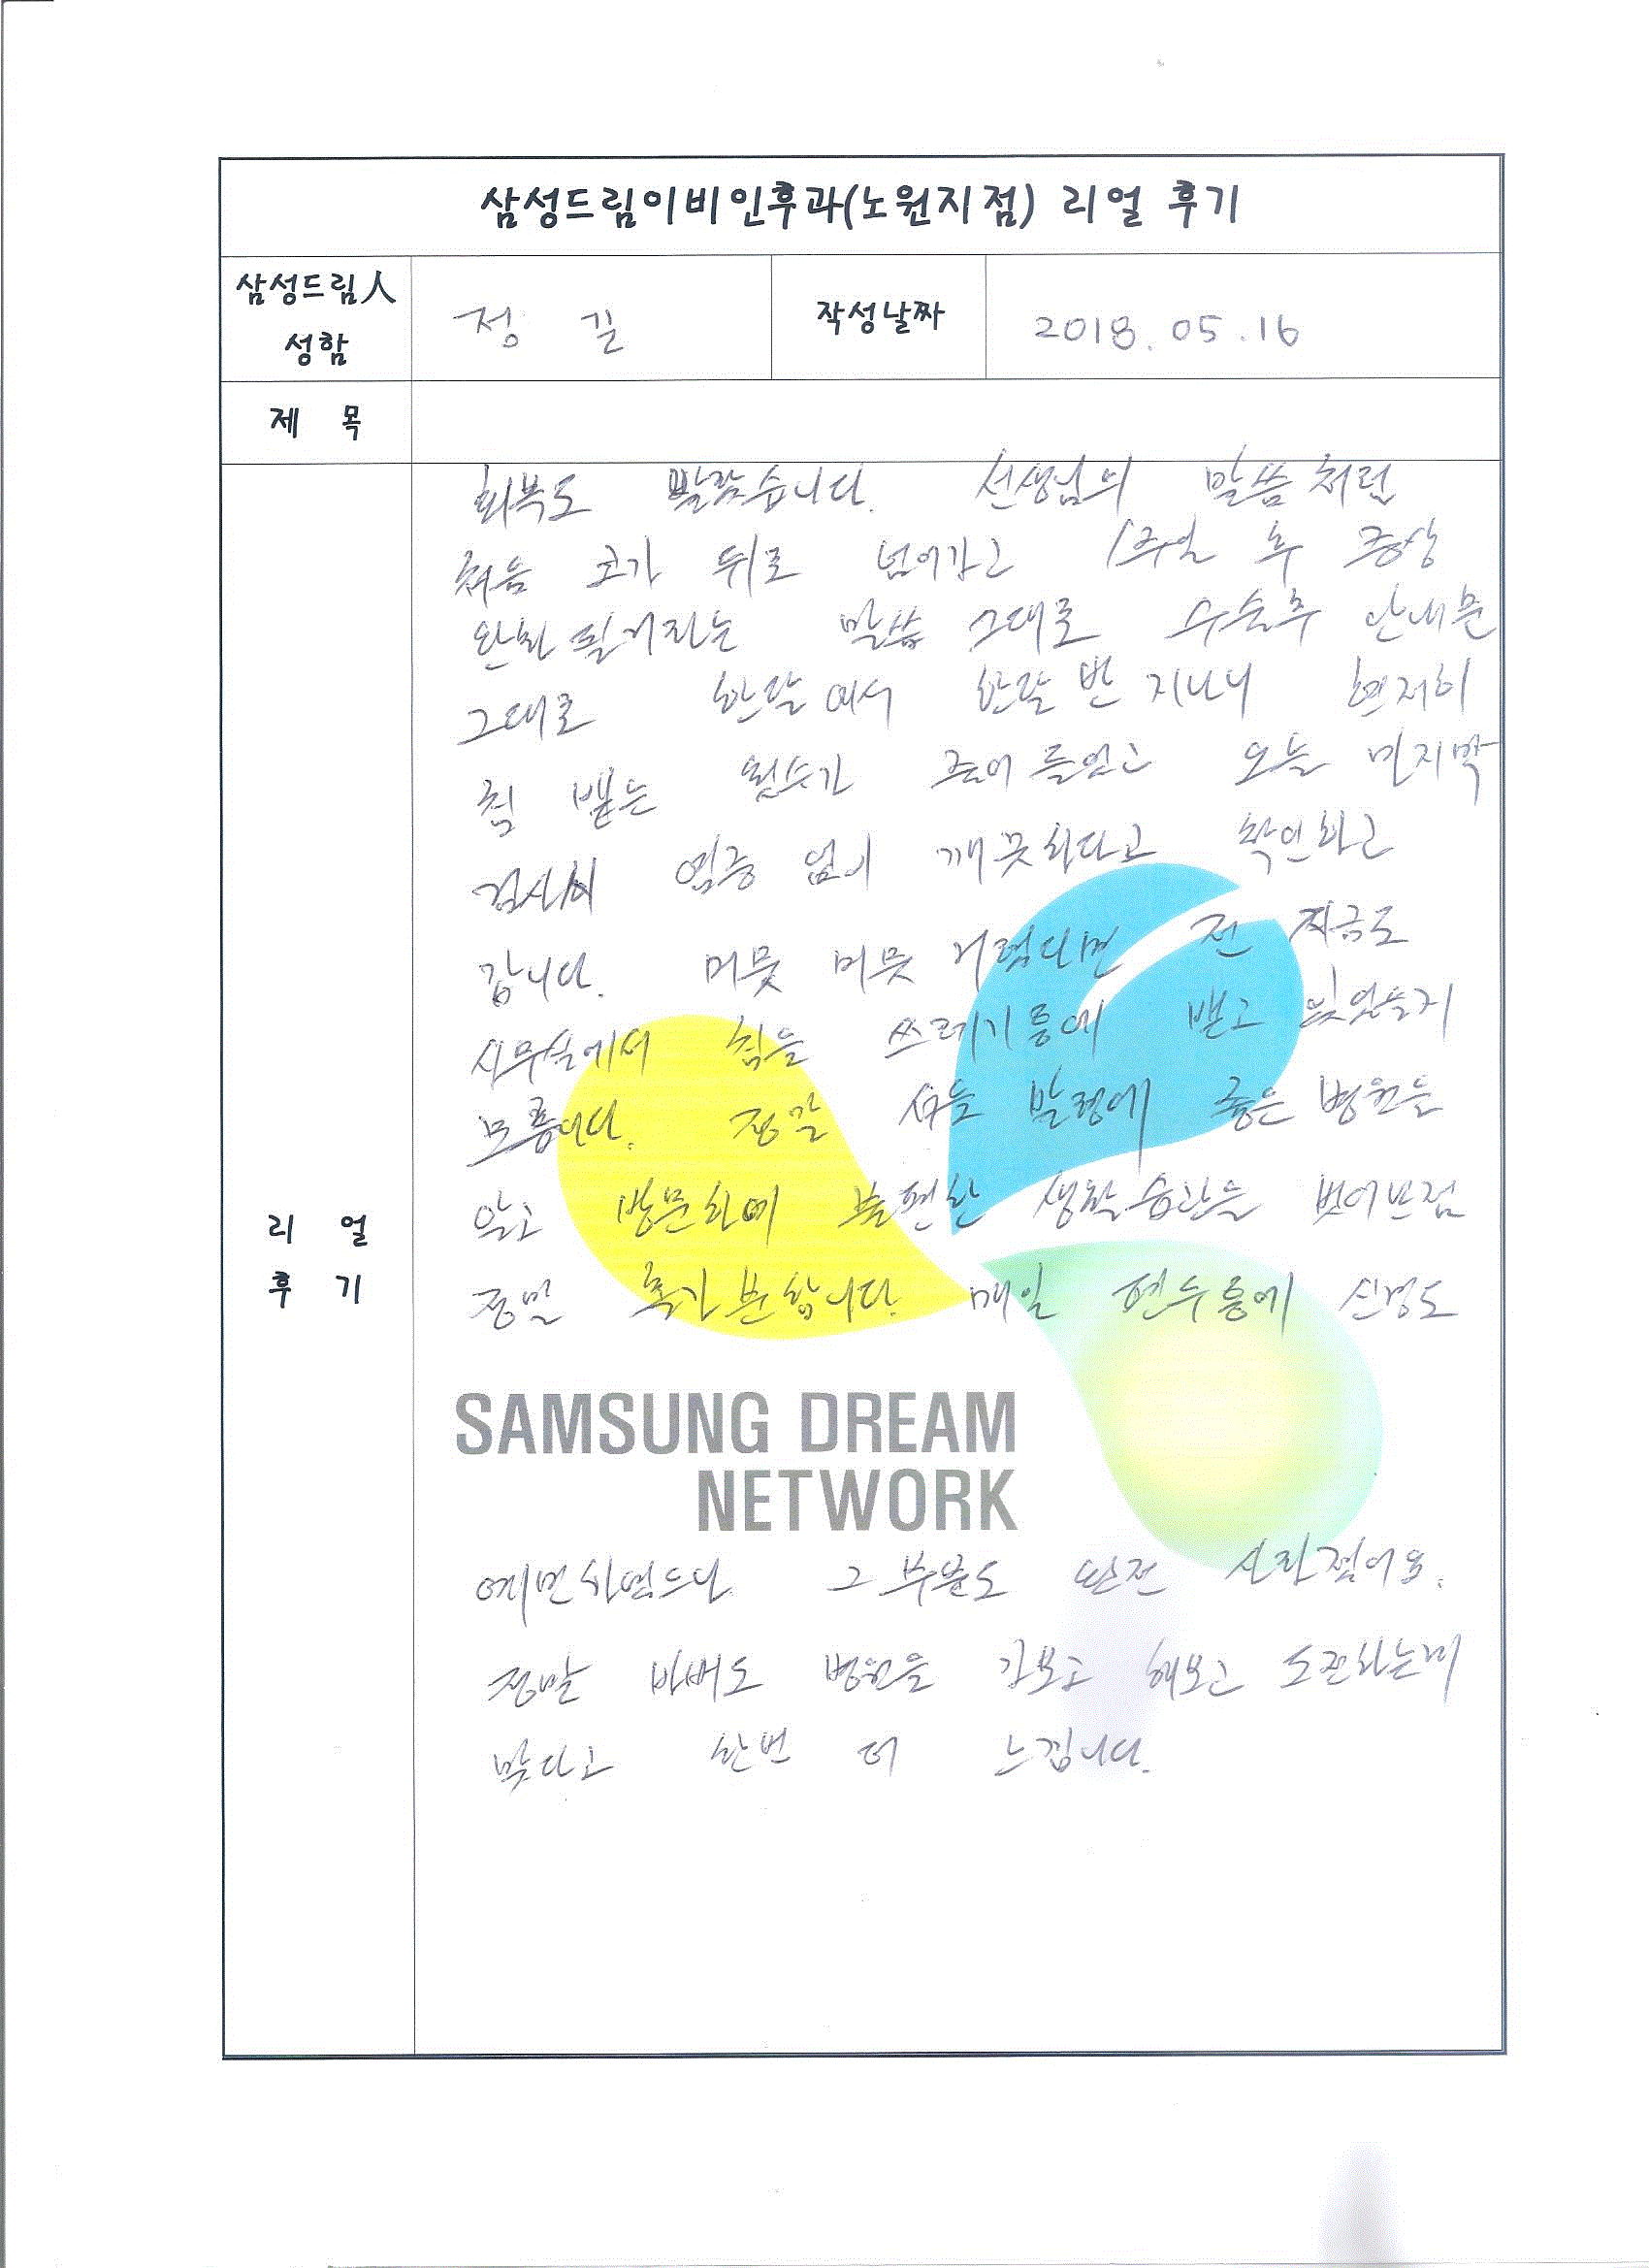 삼성드림이비인후과(노원지점) 리얼 후기
삼성드림人
성함
정 길
작성날짜
2018.05.16
제 목
리 얼
후 기
회복도 빨랐습니다. 선생님의 말씀처럼
처음 코가 뒤로 넘어가고 1주일 후 증상
완화 될거라는 말씀 그대로 수술후 안내문
그대로 한달에서 한달 반 지나니 현저히
침 뱉는 횟수가 줄어들었고 오늘 마지막
검사시 염증 없이 깨끗하다고 확인하고
갑니다. 머뭇 머뭇 거렸다면 전 지금도
사무실에서 침을 쓰레기통에 뱉고 있었을지
모릅니다. 정말 좋은 병원을
알고 방문하여 불편한 생활습관을 벗어난점
정말 합니다. 매일 신경도
SAMSUNG DREAM
NETWORK
그 부분도 완전 사라졌어요.
정말 바빠도 병원을 가보고 해보고 도전하는게
맞다고 한번 더 느낍니다.